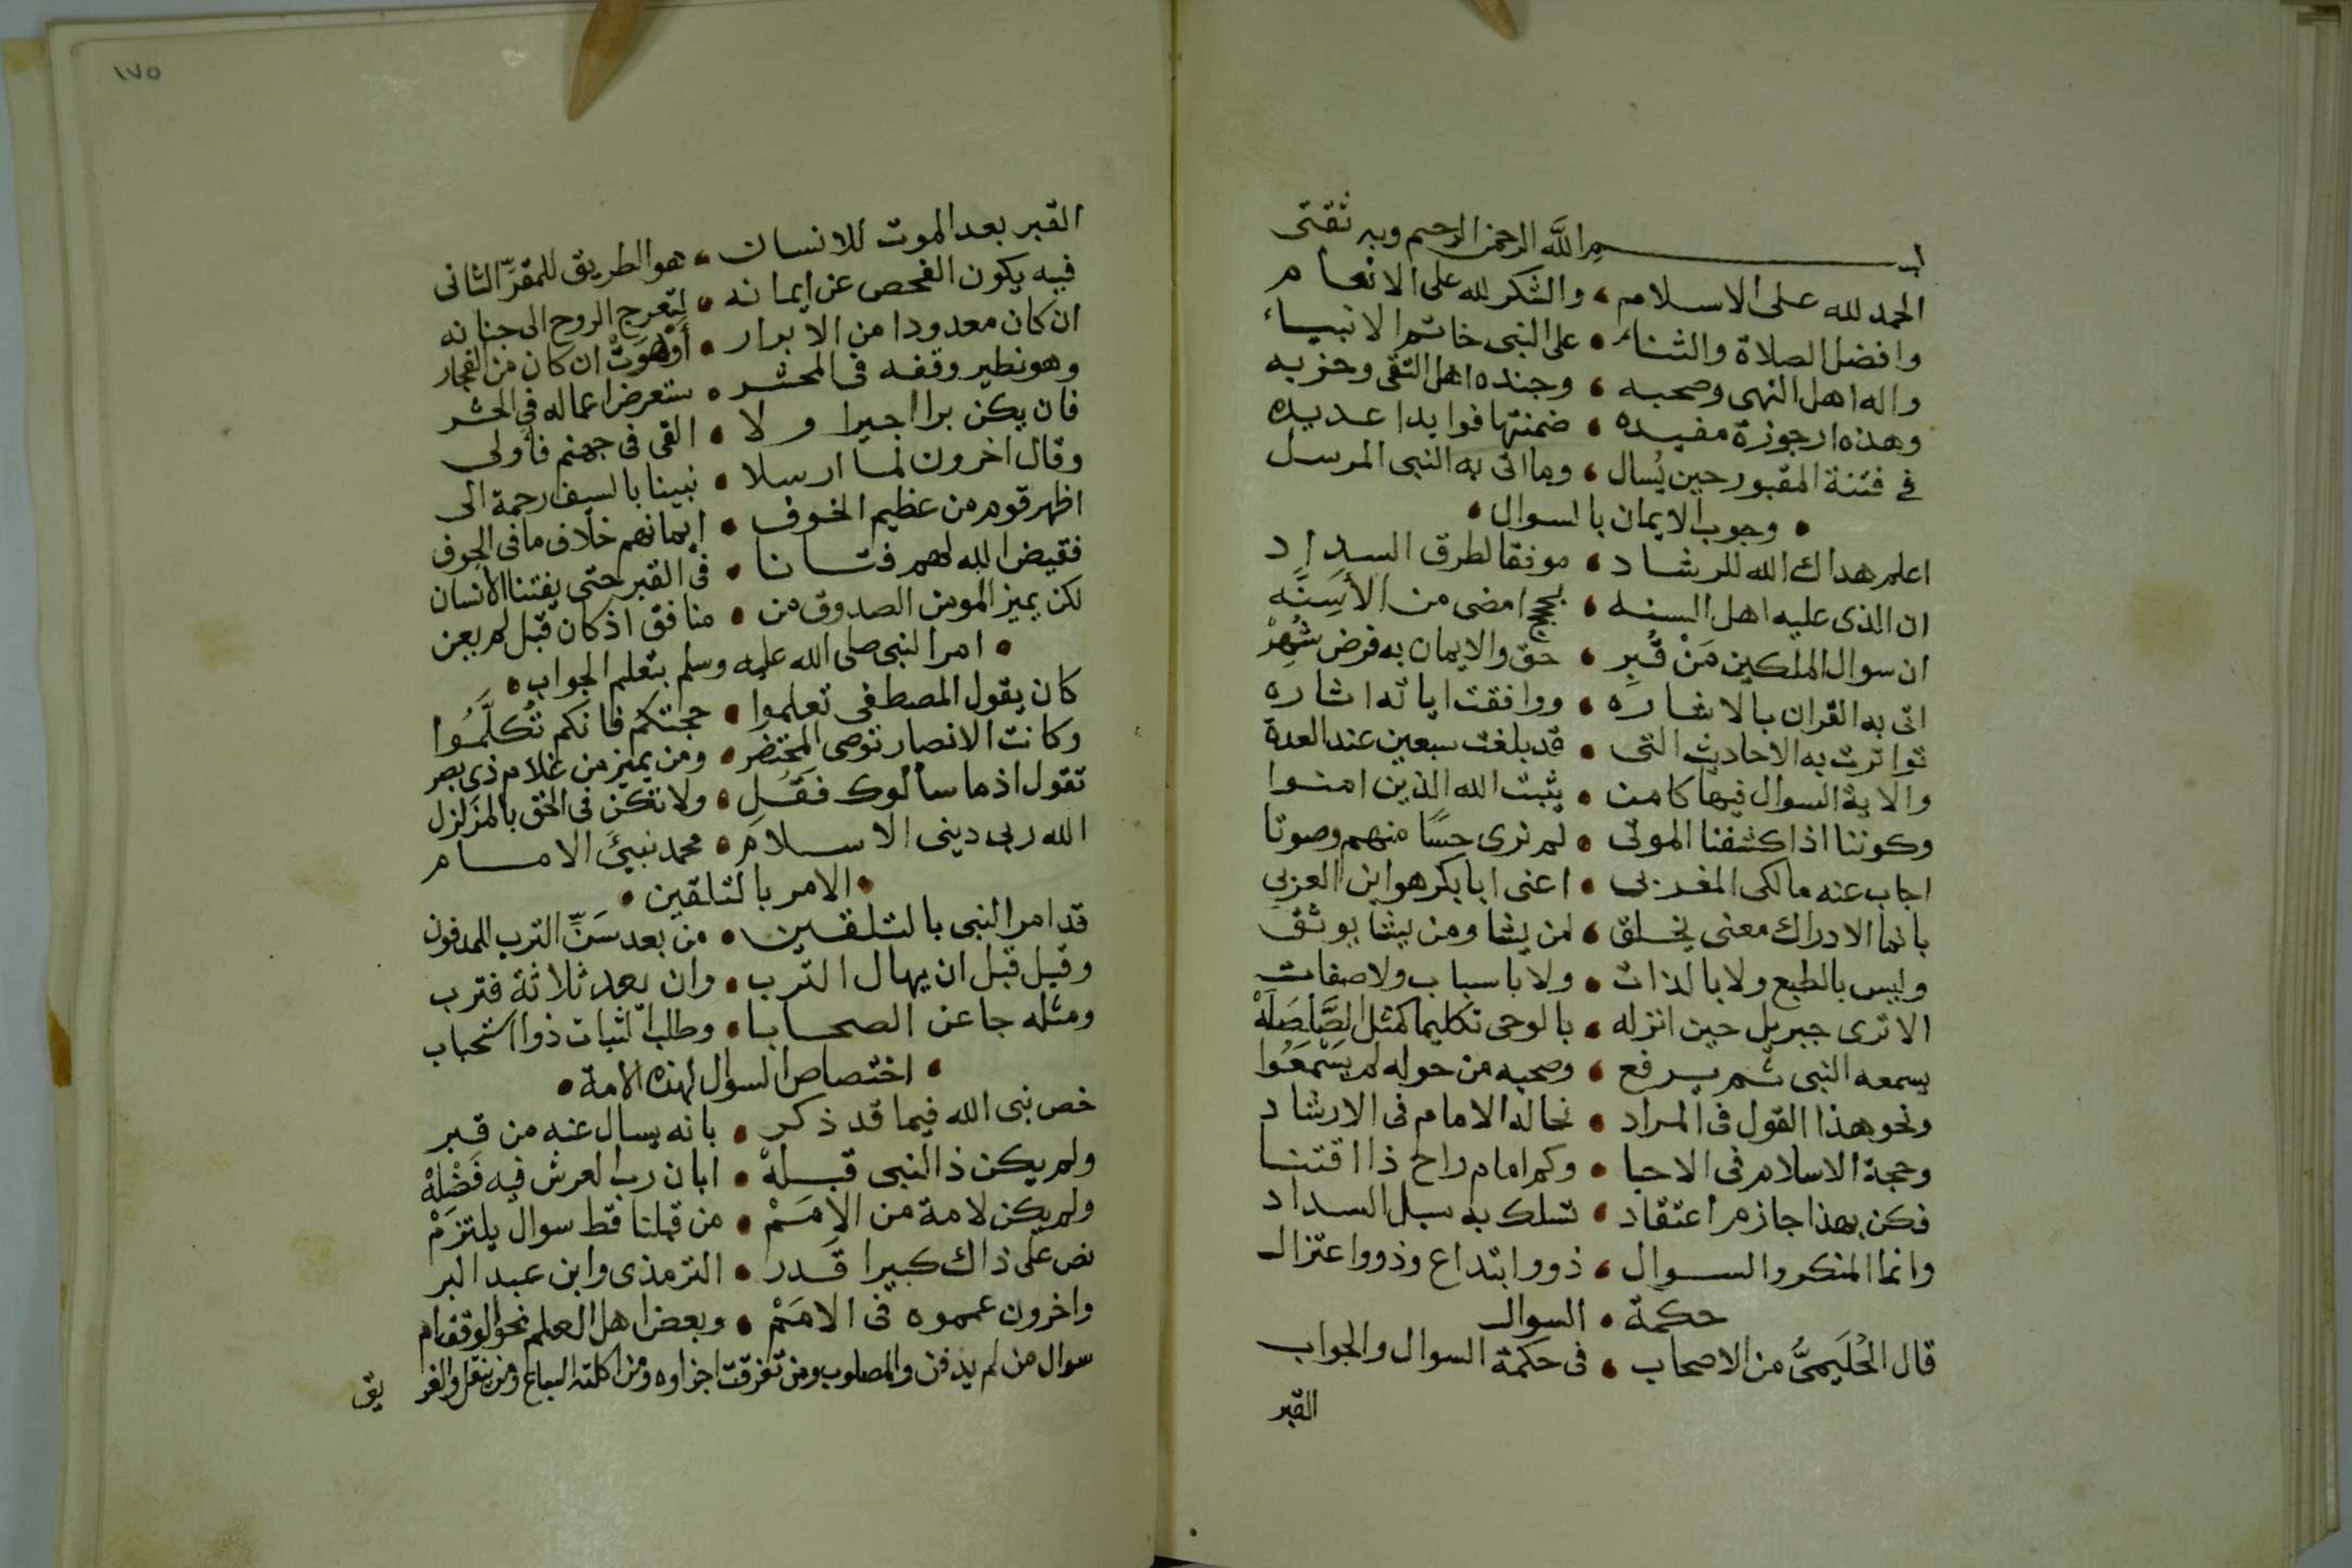 بسم الله الرحمن الرحيم وبه ثقتى
الحمد لله على الاسلام، والشكر لله على الانعام
وافضل الصلاة والثناء • على النبى خاتم الانبياء
واله اهل النهى وصحبه، وجنده اهل التقى وحزبه
وهذه ارجوزة مفيده • ضمنتها فوايدا عديده
فى فتنة المقبور حين يُسال، وما اتى به النبى المرسل
• وجوب الايمان بالسوال •
اعلم هداك الله للرشاد • موفقا لطرق السداد
ان الذى عليه اهل السنه • بحجج امضى من الأسِنَّه
ان سوال الملكين مَنْ قُبِرِ • حق والايمان به فرض شُهِرْ
اتى به القران بالاشاره • ووافقت اياته اثاره
تواترت به الاحاديث التى • قد بلغت سبعين عند العدة
والاية السوال فيها كامن • يثبت الله الذين امنوا
وكوننا اذا كشفنا الموتى • لم نرى حِسًا منهم وصوتا
اجاب عنه مالكى المغربى • اعنى ابا بكر هو ابن العربى
بانما الادراك معنى يخلق، لمن يشا ومن يشا يوثق
وليس بالطبع ولا بالذات • ولا باسباب ولا صفات
الا ترى جبريل حين انزله • بالوحى تكليما كمثل الصَّلصَلَهْ
يسمعه النبى ثم يرفع، وصحبه من حوله لم يَسْمَعُوا
ونحو هذا القول فى المراد • نحا له الامام فى الارشاد
وحجة الاسلام فى الاحيا • وكم امام راح ذا اقتنا
فكن بهذا جازم اعتقاد، تسلك به سبل السداد
وانما المنكر والسوال، ذوو ابتداع وذوو اعتزال
حكمة • السوال
قال الحُلَيمىُّ من الاصحاب • فى حكمة السوال والجواب
القبر
١٧٥
القبر بعد الموت للانسان، هو الطريق للمقرِّ الثانى
فيه يكون الفحص عن ايمانه • لِتَعرج الروح الى جنانه
ان كان معدودا من الابرار • أَوْهَوَتْ ان كان من الفجار
وهو نظير وقفه فى المحشر • ستعرض اعماله فى الحشر
فان يكن برا اجيرا ولا • القى فى جهنم فأولى
وقال اخرون لما ارسلا • نبينا بالسيف رحمة الى
اظهر قوم من عظيم الخوف • ايمانهم خلاف ما فى الجوف
فقيض الله لهم فتانا • فى القبر حتى يفتنا الانسان
لكن يميز المومن الصدوق من • منافق اذ كان قبل لم يبن
• امر النبى صلى الله عليه وسلم بتعلم الجواب •
كان يقول المصطفى تعلموا • حجتكم فانكم تُكَلَّمُوا
وكانت الانصار توصى المحتضر • ومن يميز من غلام ذى بصر
تقول اذ ما سألوك فَقُلِ • ولا تكن فى الحق بالمزَلزل
الله ربى دينى الاسلام • محمد نبيَّ الامام
• الامر بالتلقين •
قد امر النبى بالتلقين • من بعد سَنِّ الترب للمدفون
وقيل قبل ان يهال الترب • وان بعد ثلاثة فترب
ومثله جا عن الصحابا • وطلب الثبات ذو استحباب
• اختصاص السوال لهذه الامة •
خص نبى الله فيما قد ذكر • بانه يسال عنه من قبر
ولم يكن ذا لنبى قبلهْ • ابان رب العرش فيه فَضْلَهْ
ولم يكن لامة من الامَمْ • من قبلنا قط سوال يلتزمْ
نص على ذاك كبيرا قدر • الترمذى وابن عبد البر
واخرون عمموه فى الامَمْ • وبعض اهل العلم نحو الوقف ام
سوال من لم يدفن والمصلوب ومن تفرقت اجزاوه ومن اكلته السباع ومن ينقل والغر يق